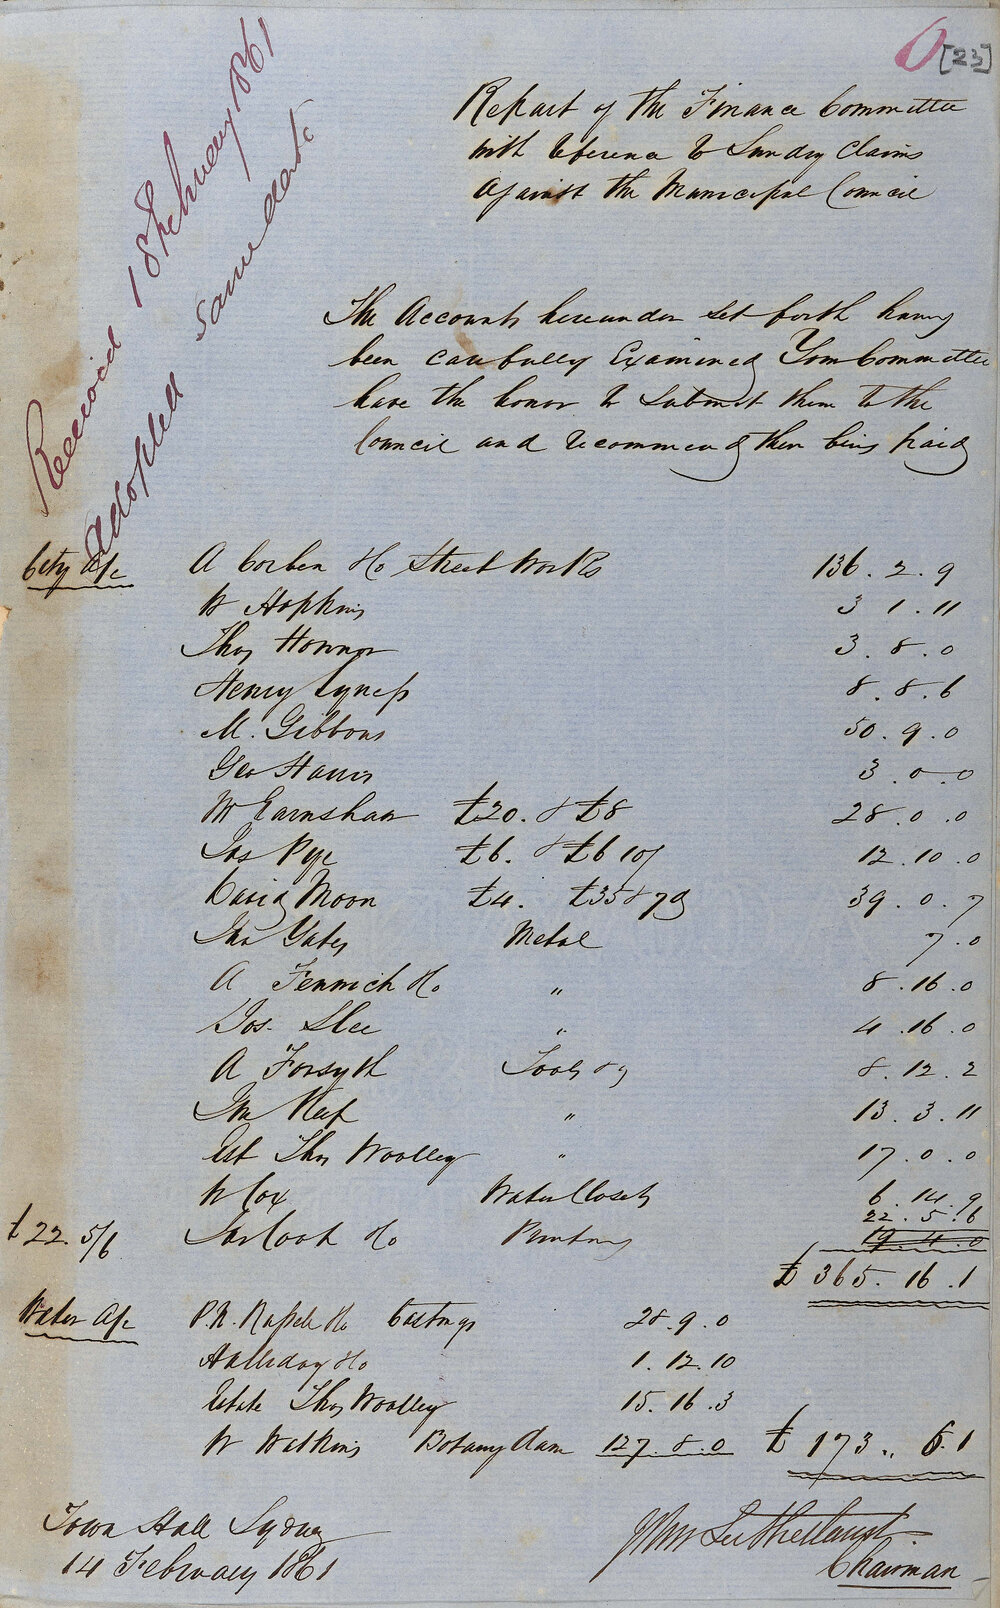 6 [23]
Received 18 February 1861
Adopted same date
Report of the Finance Committee
with reference to Sundry Claims
Against the Municipal Council
The Accounts hereunder set forth having
been carefully Examined Your Committee
have the honor to Submit them to the
Council and recommend their being paid
City A/c A Corben & Co Street Works 136. 2. 9
W Hopkins 3 1. 11
Thos Honnor 3. 8. 0
Henry Lyness 8. 8. 6
M. Gibbons 50. 9. 0
Geo Harris 3. 0. 0
W Earnshaw £20. & £8 28. 0. 0
Jas Pye £6. & £6 10/ 12. 10. 0
David Moon £4. £35 & 7d 39. 0. 7
Jno Yates Metal 7. 0
A Fenwick & Co " 8. 16. 0
Jos. Slee " 4. 16. 0
A Forsyth Tools &c 8. 12. 2
Jno Keep " 13. 3. 11
Est Thos Woolley " 17. 0. 0
W Cox Water Closets 6. 14. 9
22. 5. 6
£22. 5/6 Jas Cook & Co Printing 19. 4. 0
£ 365. 16. 1
Water A/c P.N. Russell & Co Castings 28. 9. 0
Halliday & Co 1. 12. 10
Estate Thos Woolley 15. 16. 3
W Watkins Botany Dam 127. 8. 0 £ 173.. 6. 1
Town Hall Sydney
14 February 1861
John Sutherland
Chairman